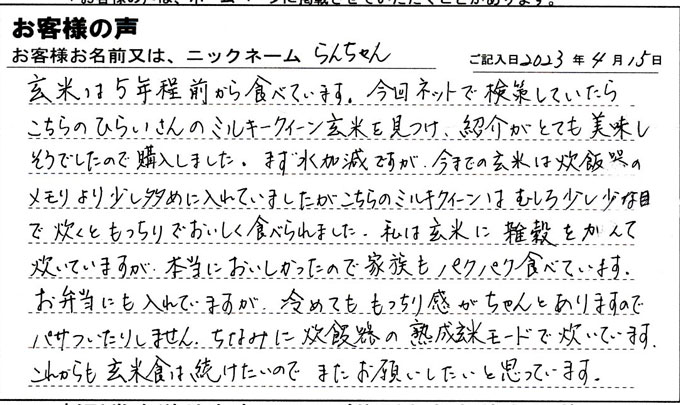 お客様の声
お客様お名前又は、ニックネーム らんちゃん ご記入日2023年4月15日
玄米は5年程前から食べています。今回ネットで検索していたら
こちらのひらいさんのミルキークイーン玄米を見つけ、紹介がとても美味し
そうでしたので購入しました。まず水加減ですが、今までの玄米は炊飯器の
メモリより少し多めに入れていましたがこちらのミルキクイーンはむしろ少し少な目
で炊くともっちりでおいしく食べられました。私は玄米に雑穀を
炊いていますが、本当においしかったので家族もパクパク食べています。
お弁当にも入れていますが、冷めてももっちり感がちゃんとありますので
パサついたりしません。ちなみに炊飯器の熟成玄米モードで炊いています。
これからも玄米食は続けたいのでまたお願いしたいと思っています。